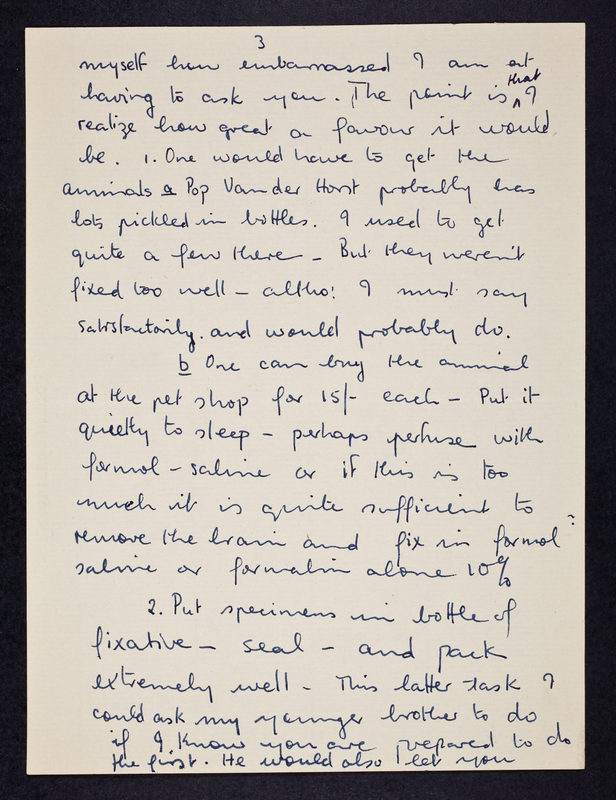 3
myself how embarrassed I am at
having to ask you. The point is that I
realize how great a favour it would
be. 1. One would have to get the
animals a Pop Van der Horst probably has
lots pickled in bottles. I used to get
quite a few there - But they weren't
fixed too well - altho' I must say
satisfactorily. and would probably do.
b One can buy the animal
at the pet shop for 15/- each - Put it
quietly to sleep - perhaps perfuse with
formol - saline or if this is too
much it is quite sufficient to
remove the brain and fix in formol
saline or formalin alone 10%
2. Put specimens in bottle of
fixative - seal - and pack
extremely well - This latter task I
could ask my younger brother to do
if I know you are prepared to do
the first. He would also let you